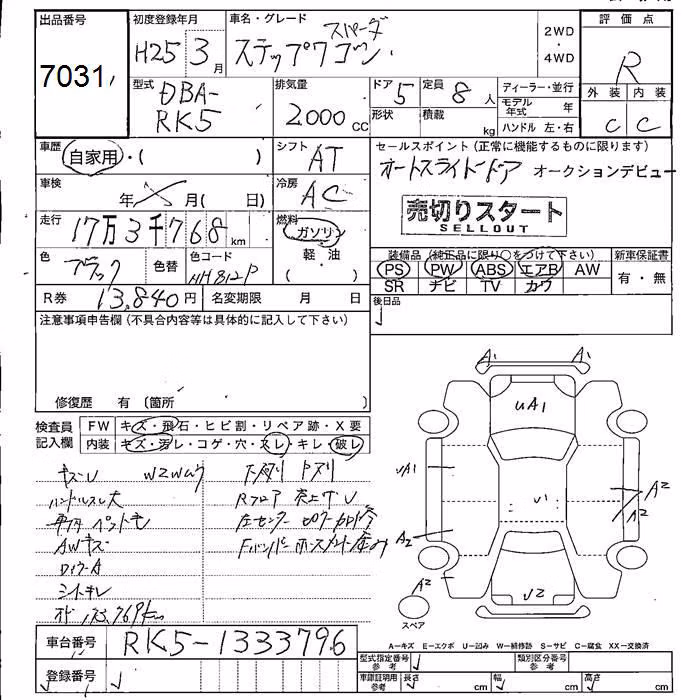 出品番号 初度登録年月 車名・グレード 評価点
7031 H25 3月 スパーダ
ステップワゴン 2WD・4WD R
型式 排気量 ドア 定員 ディーラー・並行 外装 内装
DBA-RK5 2000cc 5 8人 モデル年式 年 C C
形状 積載 kg ハンドル 左・右
車歴 シフト セールスポイント(正常に機能するものに限ります)
自家用・( ) AT オートスライドドア オークションデビュー
車検 年 月( 日) 冷房 AC
売切りスタート
SELLOUT
走行 17万3千768km 燃料 ガソリン
軽・油
装備品(純正品に限り○をつけて下さい) 新車保証書
色 ブラック 色替 色コード
PS PW ABS エアB AW 有・無
SR ナビ TV カワ
R券 13,840円 名変期限 月 日 後日品
注意事項申告欄(不具合内容等は具体的に記入して下さい)
修復歴 有(箇所 )
A1 A1
UA1
検査員記入欄 FW キズ・飛石・ヒビ割・リペア跡・X要
内装 キズ・汚レ・コゲ・穴・スレ・キレ・破レ
キズU
ハンドルスレ大
UA1 U1 A2
A2
AWキズ
A2
シートキレ
A2 U2
スペア
車台番号 RK5-1333796
A−キズ E−エクボ U−凹み W−補修跡 S−サビ C−腐食 XX−交換済
型式指定番号 参考 類別区分番号 参考
登録番号
車庫証明用 参考 長さ cm 幅 cm 高さ cm